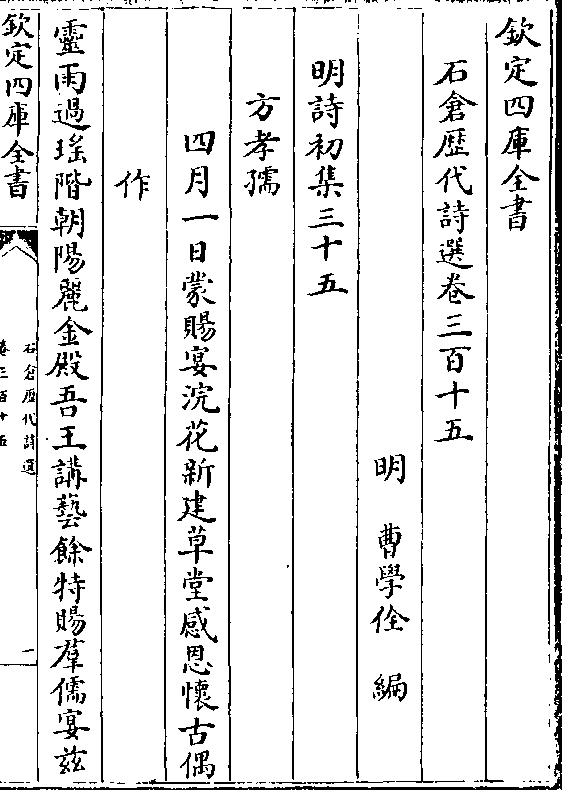 欽定四庫全書
石倉歴代詩選卷三百十五
明 曹學佺 編
明詩初集三十五
方孝孺
四月一日蒙賜宴浣花新建草堂感恩懷古偶
作
靈雨過瑤階朝陽麗金殿吾王講藝餘特賜羣儒宴兹
欽定四庫全書
石倉歴代詩選
卷三百十五
一